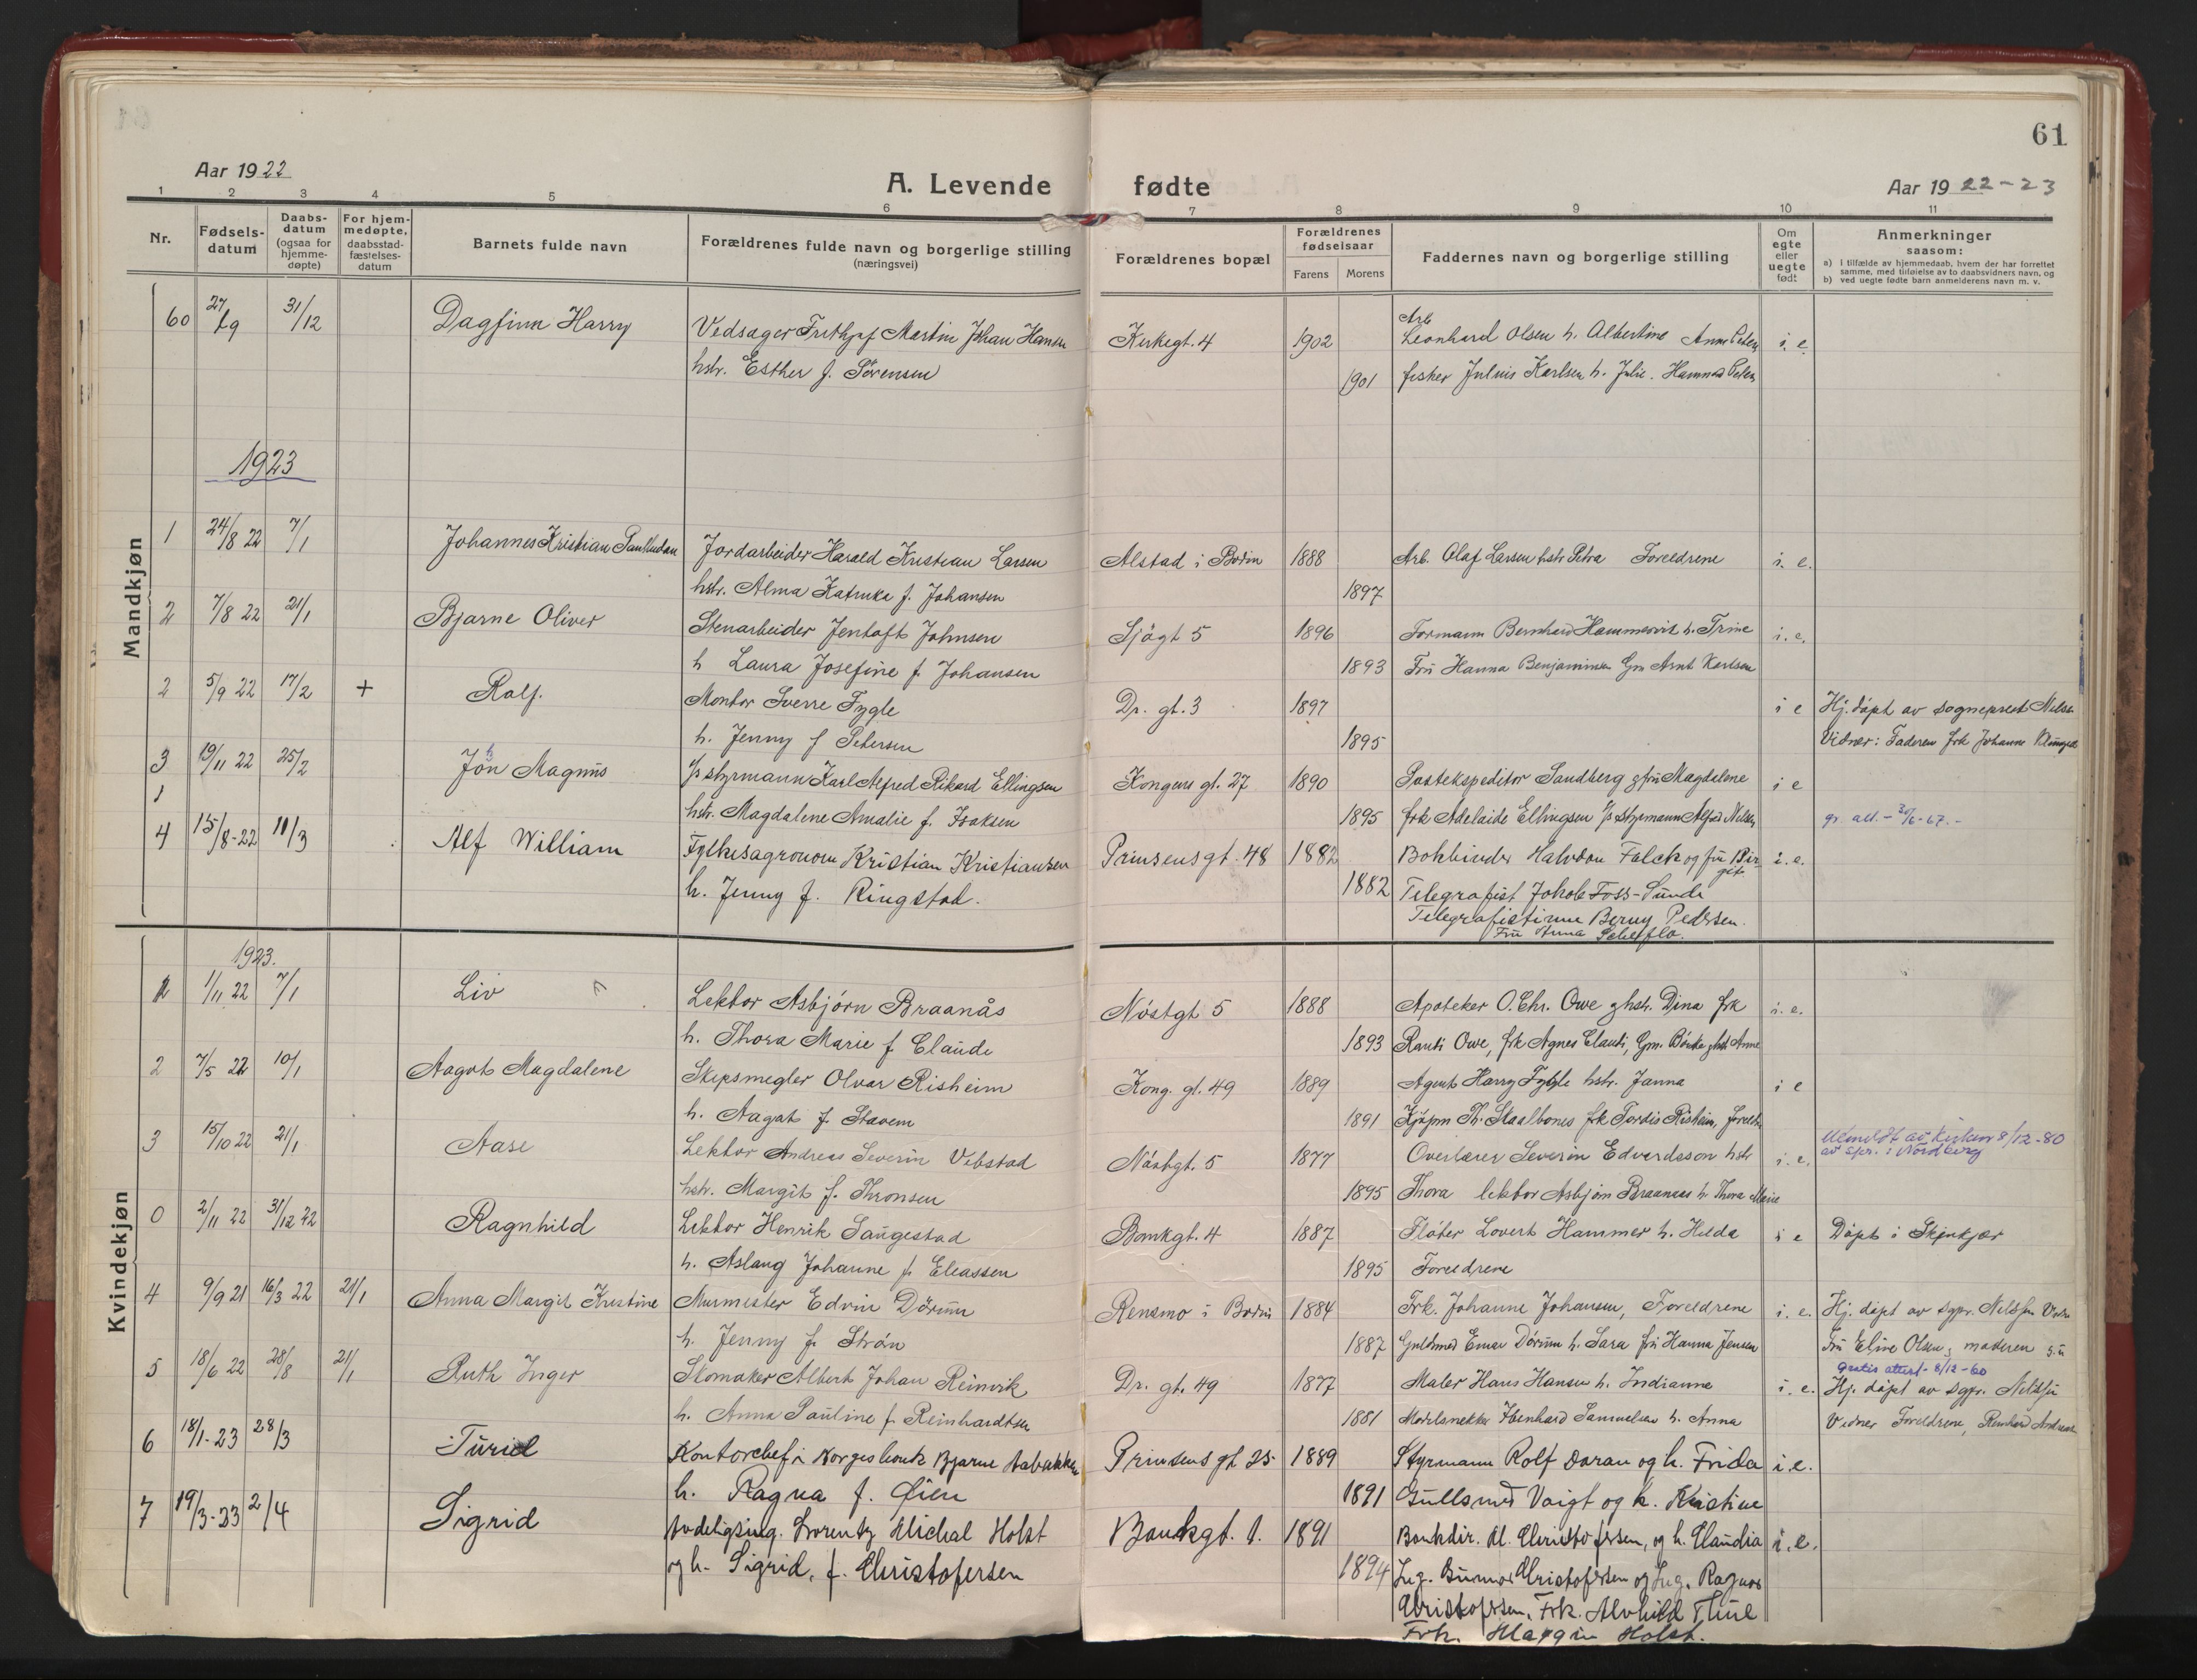 61
Aar 1922
A. Levende fødte
Aar 1922-23
1 2 3 4 5 6 7 8 9 10 11
Nr.
Fødsels-datum
Daabs-datum (ogsaa for hjemme-døpte)
For hjem-medøpte, daabsstad-fæstelses-datum
Barnets fulde navn
Forældrenes fulde navn og borgerlige stilling
(næringsvei)
Forældrenes bopæl
Forældrenes fødselsaar
Farens Morens
Faddernes navn og borgerlige stilling
Om egte eller uegte født
Anmerkninger
saasom:
a) i tilfælde av hjemmedaab, hvem der har forrettet samme, med tilføielse av to daabsvidners navn, og
b) ved uegte fødte barn anmelderens navn m. v.
Mandkjøn
60 27/9 31/12 Dagfinn Harry Vedsager Frithjof Martin Johan Hansen Kirkegt. 4 1902 Arb Leonhard Olsen h. Albertine Anne i. e.
hstr. Esther f. Sørensen 1901 fisker Julius Karlsen h. Julie.
1923
1 24/8 22 7/1 Johannes Kristian Jordarbeider Harald Kristian Larsen Alstad i Bodin 1888 Arb. Olaf Larsen hstr Petra Foreldrene i. e.
hstr. Alma Katrine f. Johansen 1897
2 7/8 22 21/1 Bjarne Oliver Stenarbeider Jentoft Johnsen Sjøgt 5 1896 Formann Bernhard Hammervik h. Trine i. e.
h Laura Josefine f. Johansen 1893 Fru Hanna Benjaminsen Gm Arnt Karlsen
2 5/9 22 17/2 + Rolf. Montør Sverre Fygle Dr. gt. 3 1897 i e Hj. døpt av sogneprest Nils
h. Jenny f Petersen 1895 Vidner: Faderen frk Johanne
3 19/11 22 25/2 Jon Magnus styrmann Karl Alfred Rikard Ellingsen Kongens gt. 27 1890 Postekspeditør Sandberg g fru Magdalene i e
1
hstr. Magdalene Amalie f. Isaksen 1895 frk Adelaide Ellingsen styrmann Alfred Nilsen gr. att. - 30/6-67.-
4 15/8-22 11/3 Alf William Fylkesagronom Kristian Kristiansen Prinsens gt. 48 1882 Bokbinder Halvdan Falck og fru Birgit i. e.
h. Jenny f. Ringstad. 1882 Telegrafist Jakob Foss-Sunde
Telegrafistinne Berny Pedersen.
Fru Anna
Kvindekjøn
1923.
1 1/11 22 7/1 Liv Lektor Asbjørn Braanås Nøstgt 5 1888 Apoteker O. Chr. Owe g hstr. Dina frk i. e.
h. Thora Marie f Claudi 1893 Randi Owe, frk Agnes Claudi, Gm.
2 7/5 22 10/1 Aagot Magdalene Skipsmegler Olvar Risheim Kong. gt. 49 1889 Agent Harry Fygle hstr. Janna i e
h. Aagot f. Stavem 1891 Kjøpm Th. Staalbones frk Tordis Risheim,
3 15/10 22 21/1 Aase Lektor Andreas Severin Vibstad Nøstgt. 5 1877 Overlærer Severin Edvardsson hstr i. e. Utmeldt av kirken 8/12-80 av spr. i Nordberg
hstr. Margit f. Thronsen 1895 Thora lektor Asbjørn Braanaas h. Thora Marie
0 2/11 22 31/12 22 Ragnhild Lektor Henrik Saugestad Bankgt. 4 1887 Fløter Lovert Hammer h. Hilda i e Døpt i Skjerkjær
h. Aslaug Johanne f. Eliassen 1895 Foreldrene
4 9/9 21 16/3 22 21/1 Anna Margit Kristine Murmester Edvin Dörum Rensmo i Bodin 1884 Frk. Johanne Johansen, Foreldrene i. e. Hj. døpt av sgpr. Nilssen
h. Jenny f. Strøm 1887 Guldsmed Einar Dörum h. Sara fru Hanna Jensen Fru Eline Olsen, moderen
5 18/6 22 28/8 21/1 Ruth Inger Skomaker Albert Johan Reinvik Dr. gt. 49 1877 Maler Hans Hansen h. Indianne i. e. gratis attest - 8/12-60 Hj. døpt av sgpr. Nilssen
h. Anna Pauline f. Reinhardtsen 1881 Modelsnekker Edenhard Samuelsen h. Anna Vidner Foreldrene,
6 18/1-23 28/3 Turid Kontorchef i Norges bank Bjarne Aabakken Prinsens gt 25 1889 Styrmann Rolf Doran og h. Frida i. e.
h. Ragna f. Øien 1891 Gullsmed Voigt og h. Kristine
7 19/3-23 2/4 Sigrid Avdelingsing. Lorentz Michal Holst Bankgt. 1. 1891 Bankdir. M. Christofersen, og h. Claudia i. e.
og h. Sigrid, f. Christofersen 1894 Ing. Gunnar Christofersen og Ing. Ragnar
Christofersen, Frk. Alvhild Thue
Frk. Margin Holst.